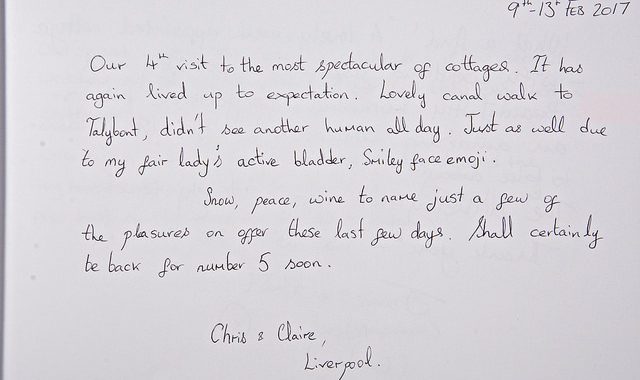 9th-13th FEB 2017
Our 4th visit to the most spectacular of cottages. It has
again lived up to expectation. Lovely canal walk to
Talybont, didn't see another human all day. Just as well due
to my fair lady's active bladder, Smiley face emoji.
Snow, peace, wine to name just a few of
the pleasures on offer these last few days. Shall certainly
be back for number 5 soon.
Chris & Claire,
Liverpool.